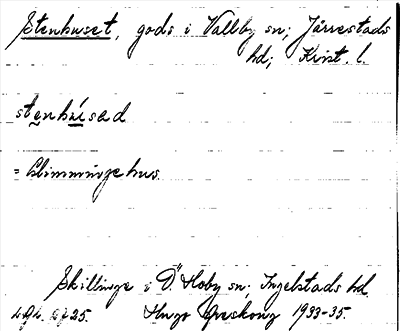 Stenhuset, gods i Vallby sn; Järrestads
hd; Krist. l.
stenhúsed
= Glimmingehus.
Skillinge i Ö Hoby sn; Ingelstads hd.
Hugo Areskoug 1933-35.